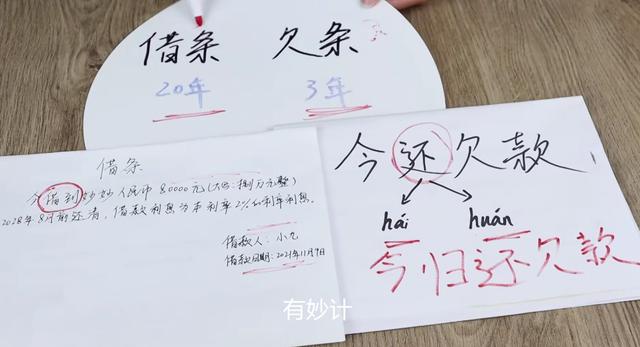 借条 欠条
20年 3年
借条
今借到妙妙人民币 80000元(大写:捌万元整)
2028年8月前还清,借款利息为年利率2%的利率利息。
借款人:小九
借款日期:2021年11月9日
今还欠款
hái huán
今归还欠款
有妙计